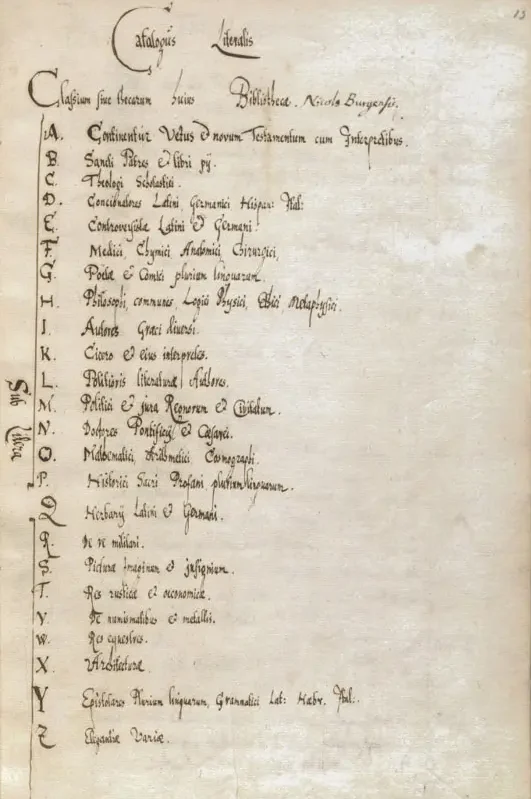 13
Catalogus Literalis
Classium siue thecarum huius Bibliothecæ. Nicols Burgensis.
A. Continentur Vetus & novum Testamentum cum Interpretibus.
B. Sancti Patres & libri pij.
C. Theologi Scholastici.
D. Concionatores Latini, Germanici Hispan: Ital:
E. Controversistæ Latini & Germani.
F. Medici, Chymici, Anatomici, Chirurgici,
G. Poetæ & Comici plurium linguarum.
H. Philosophi, communis, Logici Physici, Ethici Metaphysici.
I. Autores Græci diversi.
K. Cicero & eius interpretes.
L. Politioris literaturæ Authores.
M. Politici & jura Regnorum et Civitatum.
N. Doctores Pontificij & Cæsarei.
O. Mathematici, Arithmetici, Cosmographi.
P. Historici Sacri Profani plurium linguarum.
Q Herbarij Latini & Germani.
R. De re militari.
S. Picturæ Imaginum & insignium.
T. Res rusticæ et œconomicæ.
V De numismatibus & metallis.
W. Res equestres.
X. Architecturæ
Y Epistolares Plurium linguarum, Grammatici Lat: Hæbr. Ital:.
Z Elegantiæ Variæ.
Sub Litera